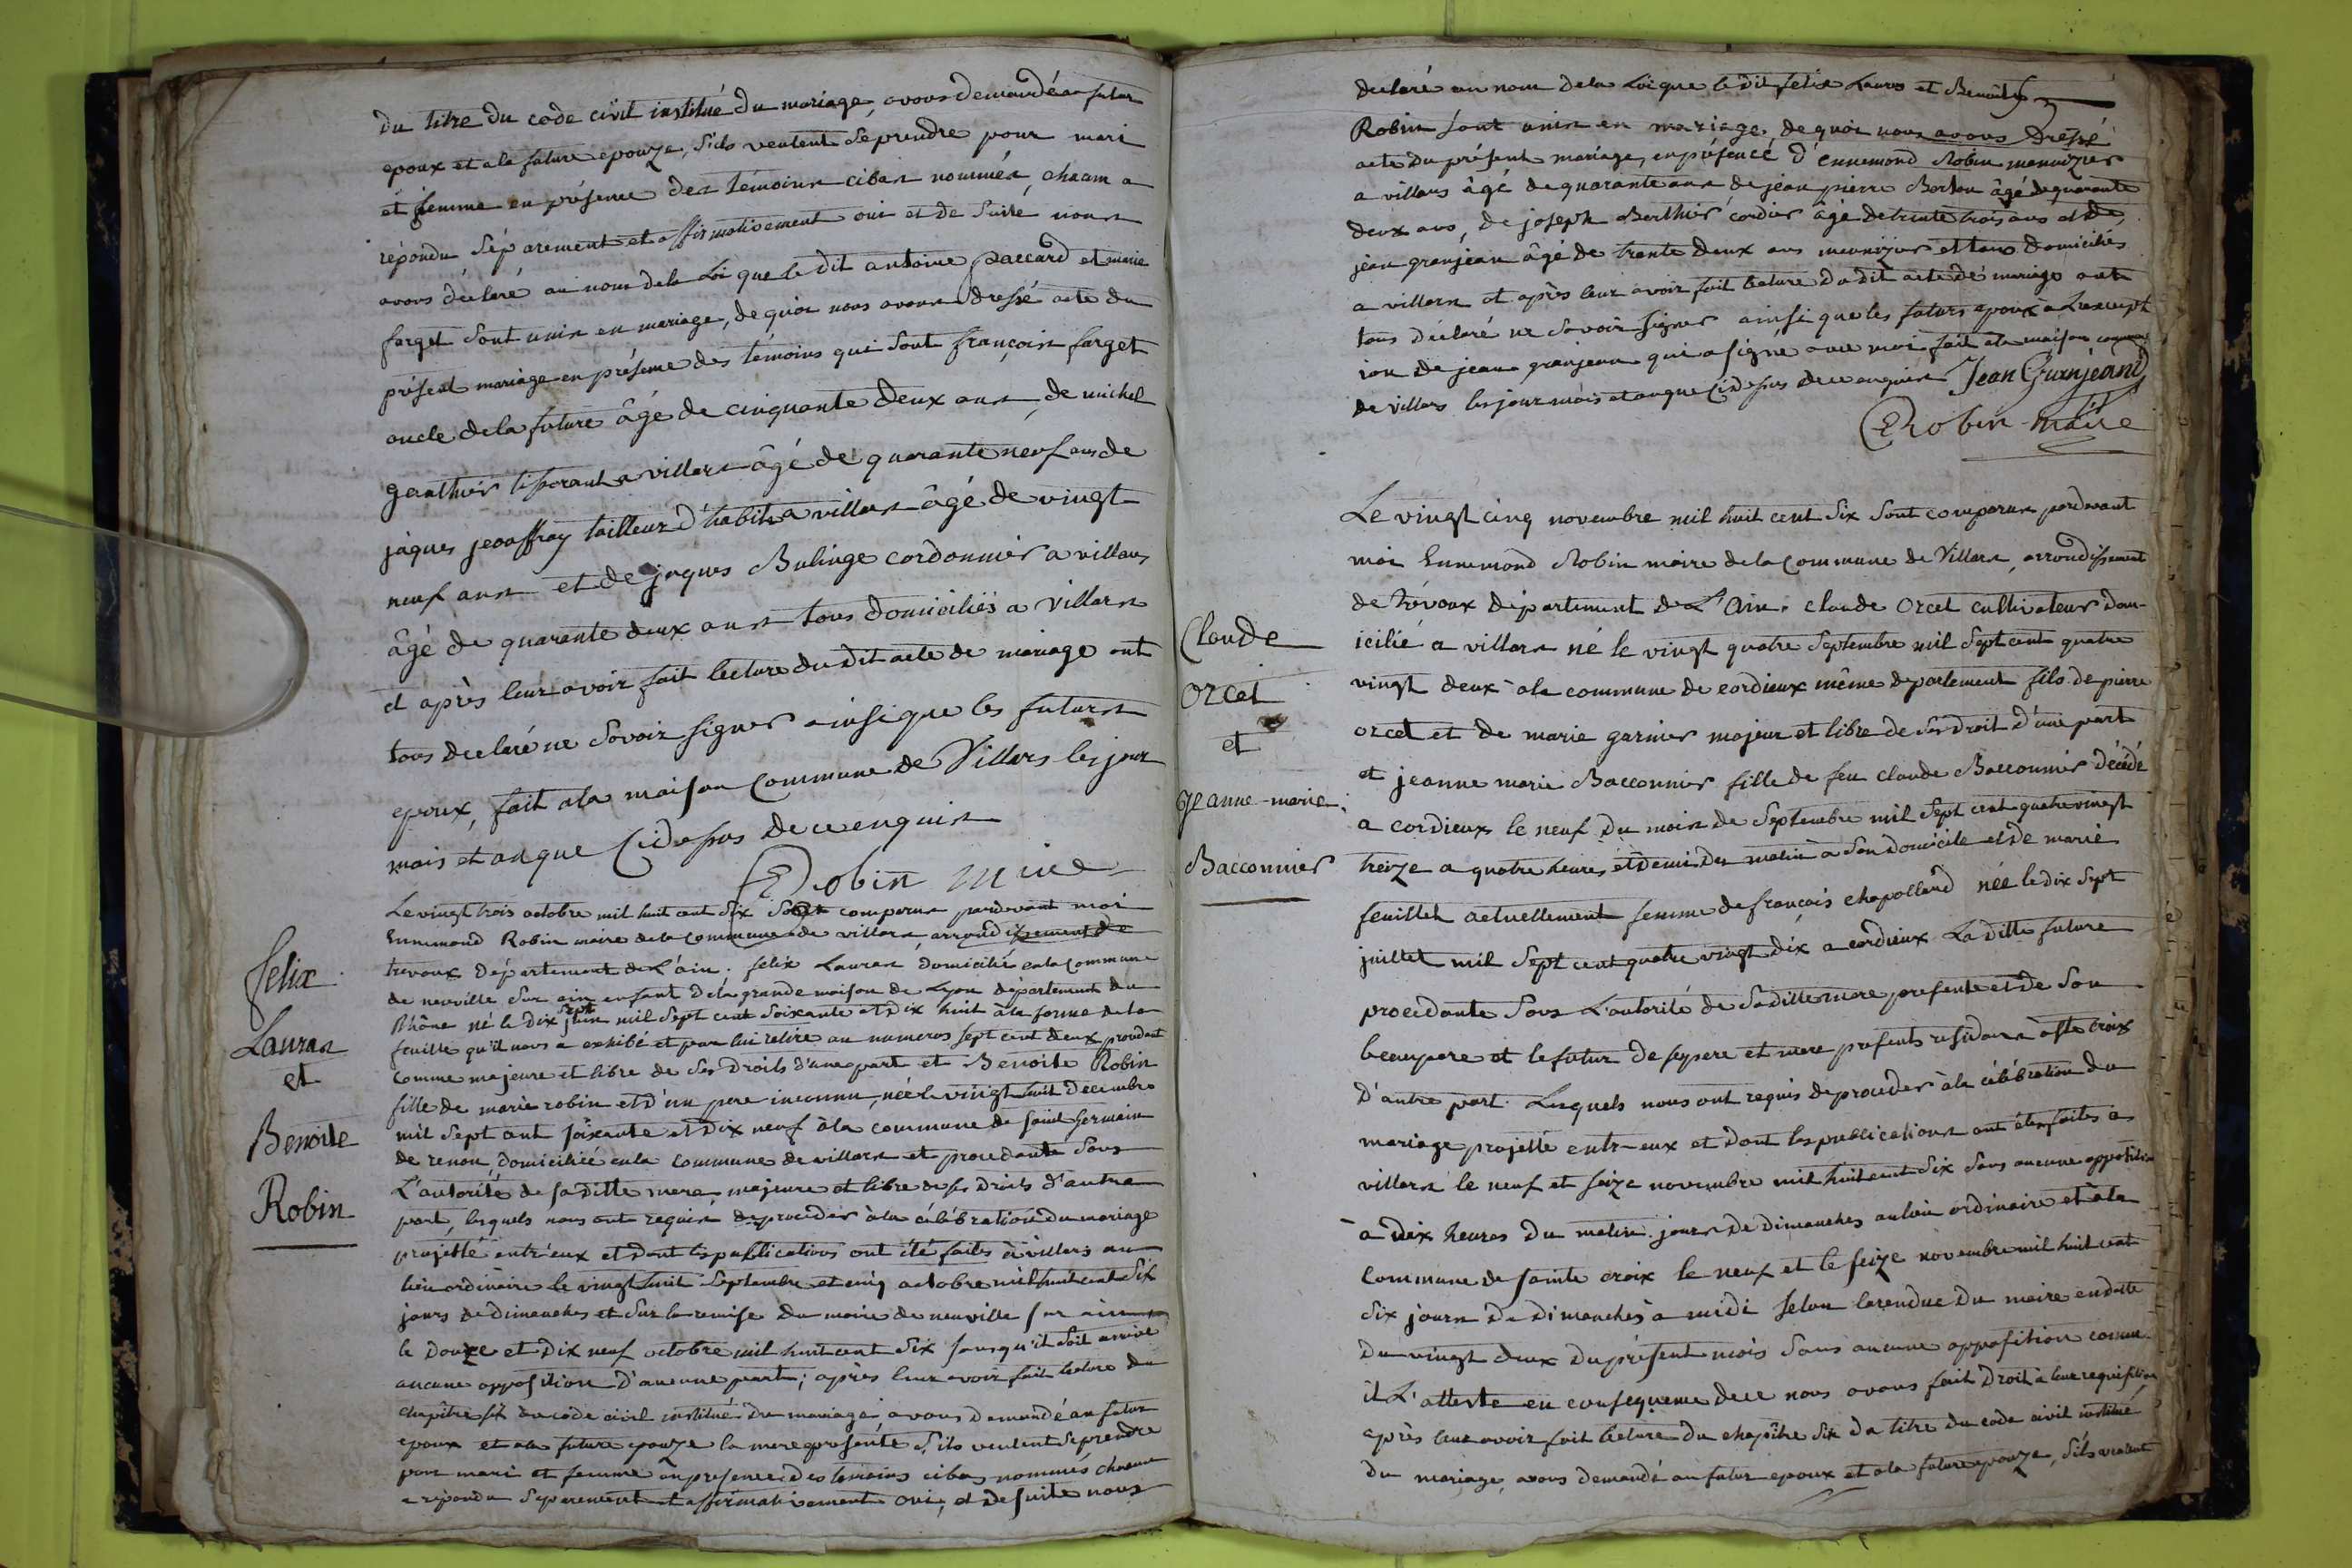 du titre du code civil institué du mariage, avons demandé au futur
epoux et a la future epouze, s'ils veulent se prendre pour mari
et femme en présence des témoins cibas nommés, chacun a
répondu séparement et affirmativement oui et de suite nous
avons déclaré au nom dela Loi que le dit antoine paccard et marie
farget sont unis en mariage, de quoi nous avons dressé acte du
présent mariage en présence des témoins qui sont françois farget
oncle dela future âgé de cinquante deux ans, de michel
gauthier tisserant a villars âgé de quarante neuf ans de
jâques jeoffray tailleur d'habits a villars âgé de vingt
neuf ans et de jaques Bulinge cordonnier a villars
âgé de quarante deux ans tous domiciliés a villars
et après leur avoir fait lecture du dit acte de mariage ont
tous declaré ne savoir signer ainsi que les futurs
epoux, fait a la maison Commune de Villars les jour
mois et an que Cidessus de ce enquis
Robin maire
Felix
Lauras
et
Benoite
Robin
Le vingt trois octobre mil huit cent six sont comparus pardevant moi
Ennemond Robin maire dela Commune de villars, arrondissement de
trevoux département de L'ain. felix Lauras domicilié en la commune
de neuville sur ain enfant dela grande maison de Lyon département du
Rhône né le dix sept juin mil sept cent soixante et dix huit à la forme dela
feuille qu'il nous a exhibé et par lui retiré au numeros sept cent deux procdant
comme majeure et libre de ses droits d'une part et Benoite Robin
fille de marie robin et d'un pere inconnu, née le vingt huit decembre
mil sept cent soixante et dix neuf à la commune de saint Germain
de renon, domiciliée en la commune de villars et procedante sous
L'autorité de sa ditte mere, majeure et libre de ses droits d'autre
part, lesquels nous ont requis de proceder à la célébration du mariage
projetté entr'eux et dont les publications ont été faites à villars au
lieu ordinaire le vingt huit septembre et cinq octobre mil huit cent six
jours de dimanches et sur la remise du maire de neuville sur ain
le douze et dix neuf octobre mil huit cent six sans qu'il soit arrivé
aucune opposition d'aucune part; après leur avoir fait lecture du
chapitre six du code civil institué du mariage, avons demandé au futur
epoux et a la future epouze la mere presente s'ils veulent se prendre
pour mari et femme en presence des temoins cibas nommés chacun
a repondu separement et affirmativement oui, et de suite nous
declaré au nom dela Loi que le dit felix Lauras et Benoite
Robin sont unis en mariage, de quoi nous avons dressé
acte du présent mariage, en présence d'ennemond Robin menuizier
a villars âgé de quarante ans de jean pierre Berlou âgé de quarante
deux ans, de joseph Berthier cordier âgé de trente trois ans et de
jean granjean âgé de trente deux ans menuizier et tous domiciliés
a villars et après leur avoir fait lecture du dit acte de mariage ont
tous déclaré ne savoir signer ainsi que les futurs epoux à Lexcept
ion de jean granjean qui a signé avec moi fait a la maison commune
de villars les jour mois et an que Cidessus de ce enquis Jean Granjeand
Robin maire
Claude
Orcet
et
Jeanne-marie
Bacconnier
Le vingt cinq novembre mil huit cent six sont comparus pardevant
moi Ennemond Robin maire dela Commune de Villars, arrondissement
de trévoux département de L'Ain. Claude Orcet cultivateur dom-
icilié a villars né le vingt quatre septembre mil sept cent quatre
vingt deux à la commune de cordieux même département fils de pierre
orcet et de marie garnier majeur et libre de ses droit d'une part
et jeanne marie Bacconnier fille de feu claude Bacconnier décédé
a cordieux le neuf du mois de septembre mil sept cent quatrevingt
treize a quatre heures et demi du matin a son domicile et de marie
feuillet actuellement femme de françois chapolland née le dix sept
juillet mil sept cent quatre vingt dix a cordieux La ditte future
procédante sous L'autorité de sa ditte mere presente et de son
beaupere et le futur de se pere et mere presents residans à ste croix
d'autre part. Lesquels nous ont requis de proceder à la célébration du
mariage projetté entr-eux et dont les publications ont étés faites a
villars le neuf et seize novembre mil huit cent six sans aucune opposition
à dix heures du matin jours de dimanches au lieu ordinaire et à la
commune de sainte croix le neuf et le seize novembre mil huit cent
six jours de dimanches a midi selon le rendue du maire en datte
du vingt deux du présent mois sans aucune opposition comme
il L'atteste en consequence de ce nous avons fait droit à leur requisition
après leur avoir fait lecture du chapître six du titre du code civil institué
du mariage, avons demandé au futur epoux et a la future epouze, s'ils veulent